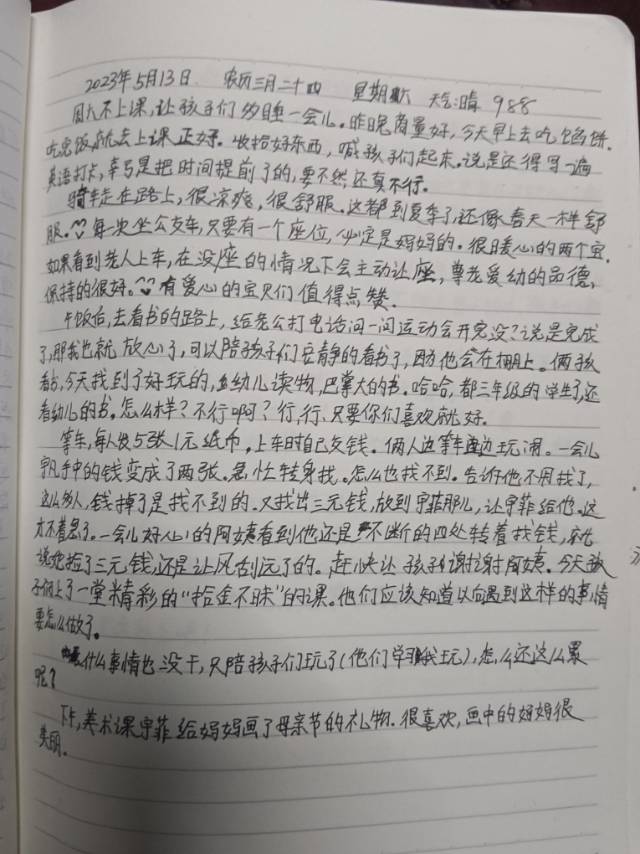 2023年5月13日 农历三月二十四 星期六 天气:晴 988
周六不上课,让孩子们多睡一会儿。昨晚商量好,今天早上去吃馅饼.
吃完饭,就去上课正好。收拾好东西,喊孩子们起来。说是还得写一遍
英语打卡,幸亏是把时间提前了的,要不然还真不行。
骑车走在路上,很凉爽,很舒服。这都到夏季了,还像春天一样舒
服。每一次坐公交车,只要有一个座位,必定是妈妈的。很暖心的两个宝.
如果看到老人上车,在没座的情况下会主动让座,尊老爱幼的品德,
保持的很好。有爱心的宝贝们值得点赞。
午饭后,去看书的路上,给老公打电话问一问运动会开完没?说是完成
了,那我也就放心了,可以陪孩子们安静的看书了,因为他会在棚上。俩孩
看书,今天找到了好玩的,幼儿读物,巴掌大的书。哈哈,都三年级的学生了,还
看幼儿的书。怎么样?不行啊?行,行,只要你们喜欢就好。
等车,每人发5张1元纸币,上车时自己交钱。俩人边等车边玩闹。一会儿
手中的钱变成了两张。急忙转身找。怎么也找不到。告诉他不用找了,
这么多人,钱掉了是找不到的。又找出三元钱,放到宇菲那儿,让宇菲给他。这
才不着急了。一会儿好心的阿姨看到他还是不断的四处转着找钱,就
说她捡了三元钱,还是让风刮远了的。赶快让孩子谢谢阿姨。今天孩
子们上了一堂精彩的“拾金不昧”的课。他们应该知道以后遇到这样的事情
要怎么做了。
什么事情也没干,只陪孩子们玩了(他们学习我玩),怎么还这么累
呢?
下午,美术课宇菲给妈妈画了母亲节的礼物。很喜欢,画中的妈妈很
美丽.